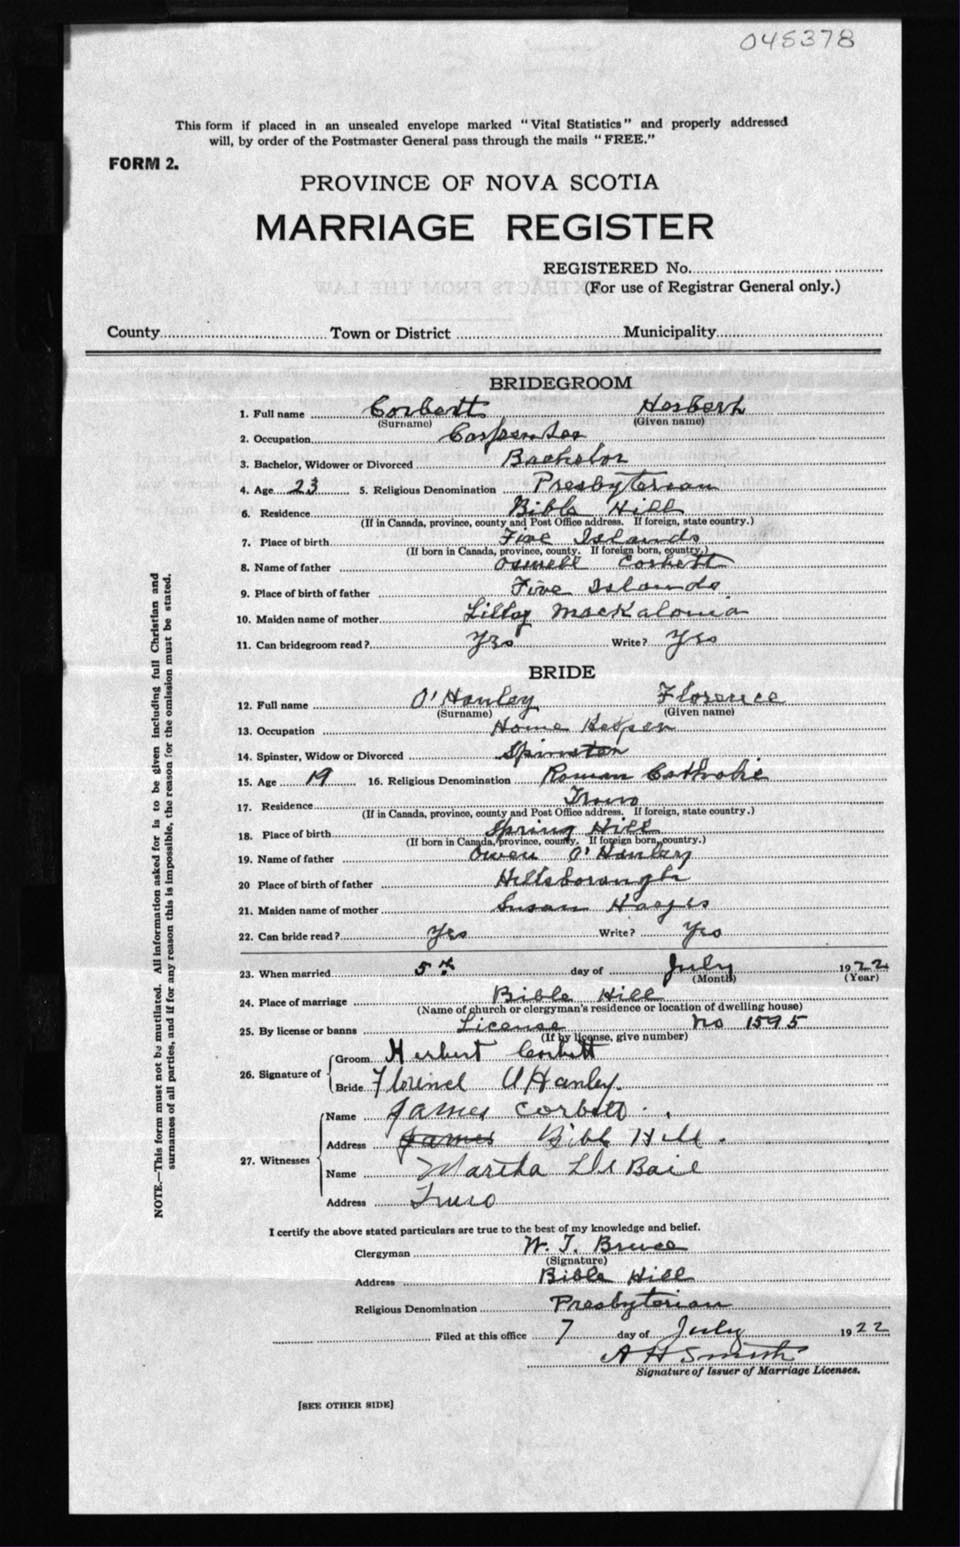 045378
This form if placed in an unsealed envelope marked "Vital Statistics" and properly addressed
will, by order of the Postmaster General pass through the mails "FREE."
FORM 2.
PROVINCE OF NOVA SCOTIA
MARRIAGE REGISTER
REGISTERED No.
(For use of Registrar General only.)
County Town or District Municipality
BRIDEGROOM
1. Full name Corbett Herbert
(Surname) (Given name)
2. Occupation Carpenter
3. Bachelor, Widower or Divorced Bachelor
4. Age 23 5. Religious Denomination Presbyterian
6. Residence Bible Hill
(If in Canada, province, county and Post Office address. If foreign, state country.)
7. Place of birth Five Islands
(If born in Canada, province, county. If foreign born, country.)
8. Name of father Oswell Corbett
9. Place of birth of father Five Islands
10. Maiden name of mother
11. Can bridegroom read? Yes Write? Yes
BRIDE
12. Full name O'Hanley Florence
(Surname) (Given name)
13. Occupation Home Keeper
14. Spinster, Widow or Divorced Spinster
15. Age 19 16. Religious Denomination Roman Catholic
17. Residence Truro
(If in Canada, province, county and Post Office address. If foreign, state country.)
18. Place of birth Spring Hill
(If born in Canada, province, county. If foreign born, country.)
19. Name of father Owen O'Hanley
20 Place of birth of father Hillsborough
21. Maiden name of mother Susan
22. Can bride read? Yes Write? Yes
23. When married 5th day of July 1922
(Month) (Year)
24. Place of marriage Bible Hill
(Name of church or clergyman's residence or location of dwelling house)
25. By license or banns License No 1595
(If by license, give number)
26. Signature of Groom Herbert Corbett
Bride Florence O'Hanley.
27. Witnesses Name James Corbett
Address James Bible Hill.
Name Martha
Address Truro
I certify the above stated particulars are true to the best of my knowledge and belief.
Clergyman W. T. Bruce
(Signature)
Address Bible Hill
Religious Denomination Presbyterian
Filed at this office 7 day of July 1922
A H Smith
Signature of Issuer of Marriage Licenses.
[SEE OTHER SIDE]
NOTE.—This form must not be mutilated. All information asked for is to be given including full Christian and
surnames of all parties, and if for any reason this is impossible, the reason for the omission must be stated.